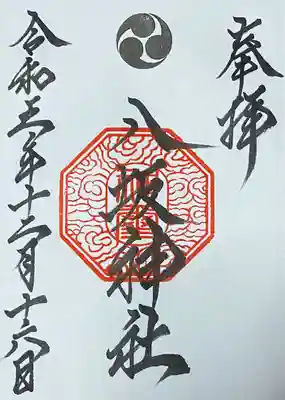 奉拝
八坂神社
令和五年十二月十六日